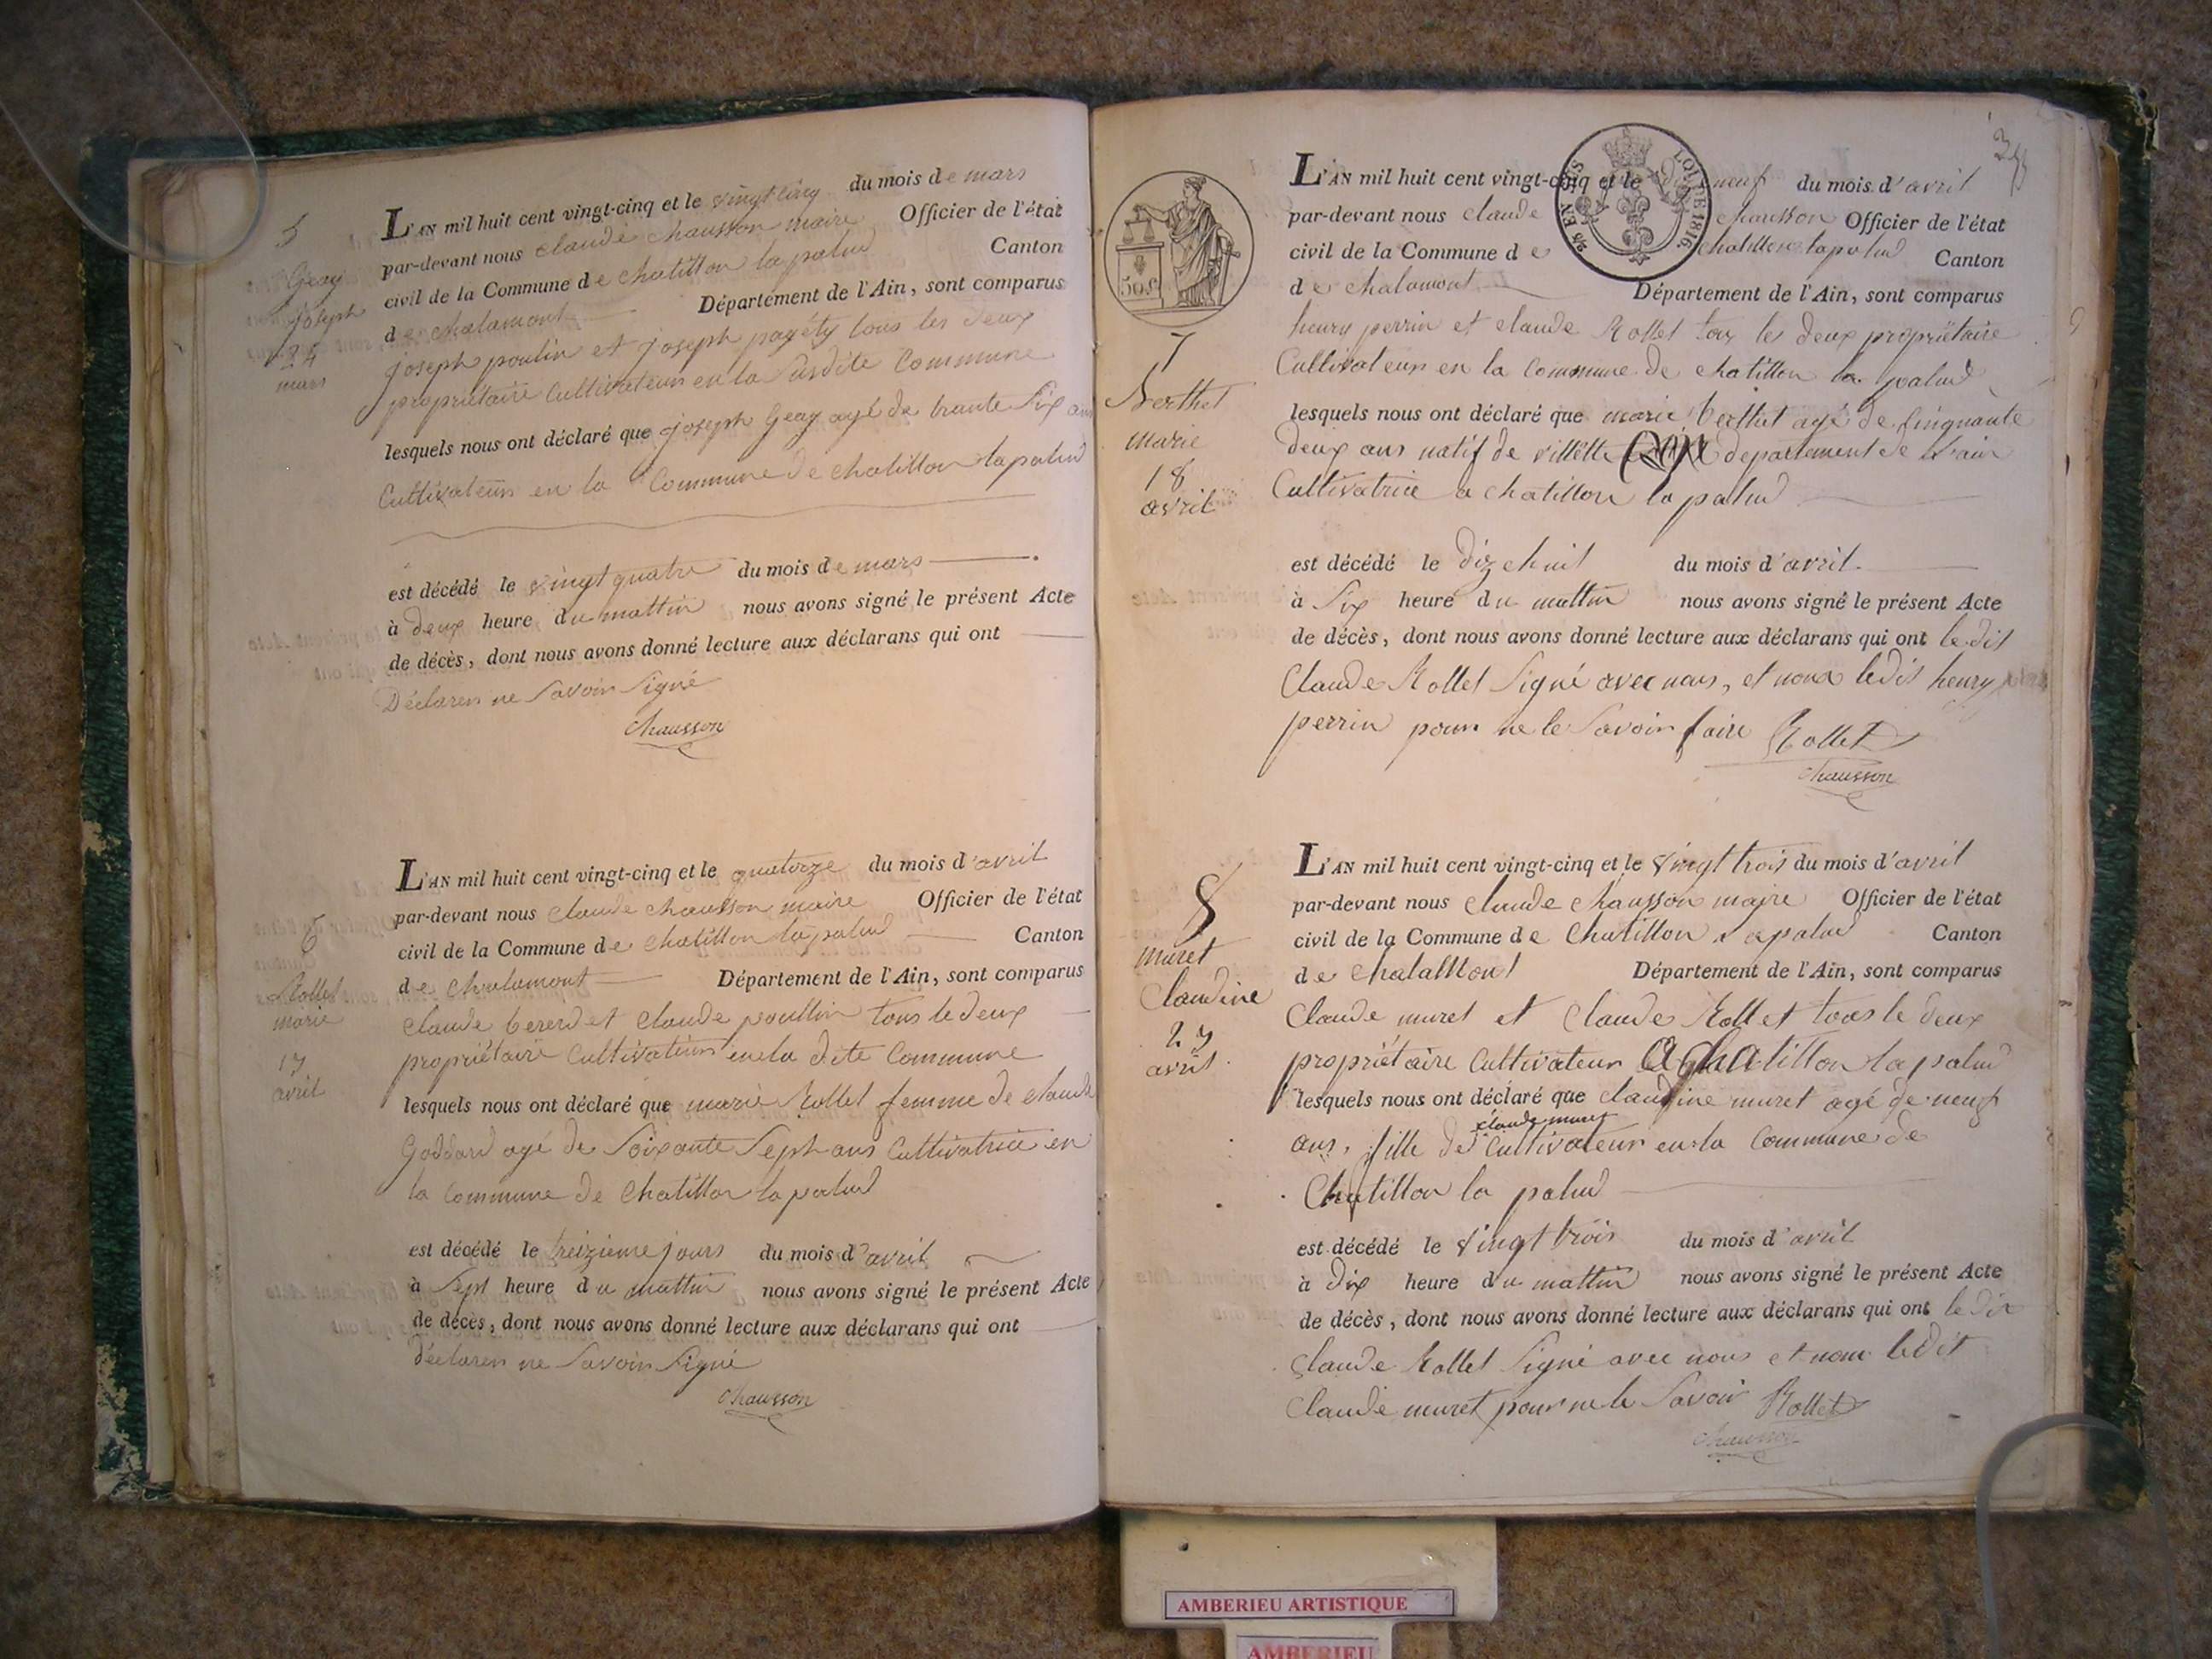 5
Geay
joseph
24
mars
L'AN mil huit cent vingt-cinq et le vingt cinq du mois de mars
par-devant nous claude chausson maire Officier de l'état
civil de la Commune de chatillon la palud Canton
de chalamont Département de l'Ain, sont comparus
joseph poulin et joseph pagéty tous les deux
propriétaire Cultivateur en la susdite Commune
lesquels nous ont déclaré que joseph Geay agé de trante six ans
Cultivateur en la Commune de chatillon la palud
est décédé le vingt quatre du mois de mars
à deux heure du mattin nous avons signé le présent Acte
de décès, dont nous avons donné lecture aux déclarans qui ont
Déclaren ne savoir signé
chausson
6
Rollet
marie
13
avril
L'AN mil huit cent vingt-cinq et le quatorze du mois d'avril
par-devant nous claude chausson maire Officier de l'état
civil de la Commune de chatillon la palud Canton
de chalamont Département de l'Ain, sont comparus
claude bererd et claude poullin tous le deux
propriétaire Cultivateur en la dite Commune
lesquels nous ont déclaré que marie Rollet femme de claude
Goddard agé de soixante sept ans Cultivatrice en
la Commune de Chatillon la palud
est décédé le treizieme jours du mois d'avril
à sept heure du mattin nous avons signé le présent Acte
de décès, dont nous avons donné lecture aux déclarans qui ont
déclaren ne savoir signé
chausson
50 c.
LOI DE 1816
7
Berthet
marie
18
avril
L'AN mil huit cent vingt-cinq et le neuf du mois d'avril
par-devant nous claude chausson Officier de l'état
civil de la Commune de chatillon la palud Canton
de chalamont Département de l'Ain, sont comparus
henry perrin et claude Rollet tous les deux propriétaire
Cultivateur en la Commune de chatillon la palud
lesquels nous ont déclaré que marie berthet agé de cinquante
deux ans natif de villette departement de l'ain
Cultivatrice a chatillon la palud
est décédé le dizehuit du mois d'avril
à six heure du mattin nous avons signé le présent Acte
de décès, dont nous avons donné lecture aux déclarans qui ont le dit
Claude Rollet signé avec nous, et nona ledit henry
perrin pour ne le savoir faire Rollet
chausson
8
muret
Claudine
23
avril
L'AN mil huit cent vingt-cinq et le vingt trois du mois d'avril
par-devant nous claude chausson maire Officier de l'état
civil de la Commune de Chatillon la palud Canton
de Chalamont Département de l'Ain, sont comparus
Claude muret et Claude Rollet tous le deux
propriétaire Cultivateur a chatillon la palud
lesquels nous ont déclaré que claudine muret agé de neuf
claude muret
ans, fille de Cultivateur en la Commune de
Chatillon la palud
est décédé le vingt trois du mois d'avril
à dix heure du mattin nous avons signé le présent Acte
de décès, dont nous avons donné lecture aux déclarans qui ont le dit
Claude Rollet signé avec nous et nom ledit
Claude muret pour ne le savoir Rollet
chausson
AMBERIEU ARTISTIQUE
AMBERIEU